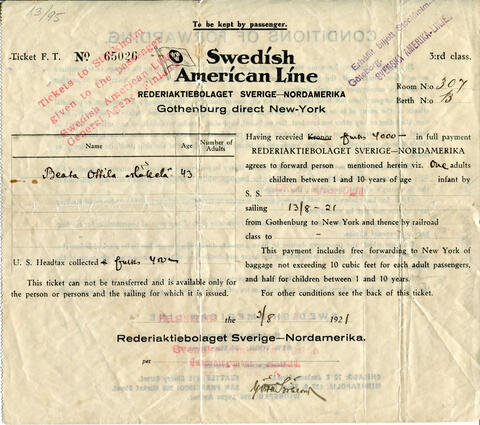 13/95
To be kept by passenger.
Ticket F. T. No 65026
Swedish
American Line
3:rd class.
REDERIAKTIEBOLAGET SVERIGE—NORDAMERIKA
Gothenburg direct New-York
Tickets to Stockholm
given to the passenger
Swedish American Line
General Agency
SVENSKA AMERIKA-LINIE.
Room N:o 307
Berth N:o B
Name Age Number of Adults
Beata 43
Having recevied Kronor 4000— in full payment
REDERIAKTIEBOLAGET SVERIGE—NORDAMERIKA
agrees to forward person mentioned herein viz. One adults
children between 1 and 10 years of age infant by
S. S.
sailing 13/8-21
from Gothenburg to New York and thence by railroad
class to —
This payment includes free forwarding to New York of
baggage not exceeding 10 cubic feet for each adult passengers,
and half for children between 1 and 10 years.
For other conditions see the back of this ticket.
U. S. Headtax collected
This ticket can not be transferred and is available only
for the person or persons and the sailing for which it is issued.
the 3/8 1921
Rederiaktiebolaget Sverige—Nordamerika.
per